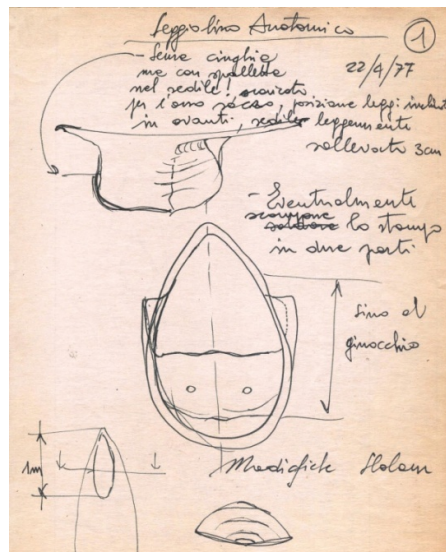 Seggiolino Anatomico
1
22/4/77
- Senza cinghia
ma con spalletta
nel sedile! scaricato
per l'osso sacro, posizione legg. inclinata
in avanti, sedile leggermente
sollevato 3cm
- Eventualmente
scomporre
lo stampo
in due parti
sino al
ginocchio
1m
Modifiche